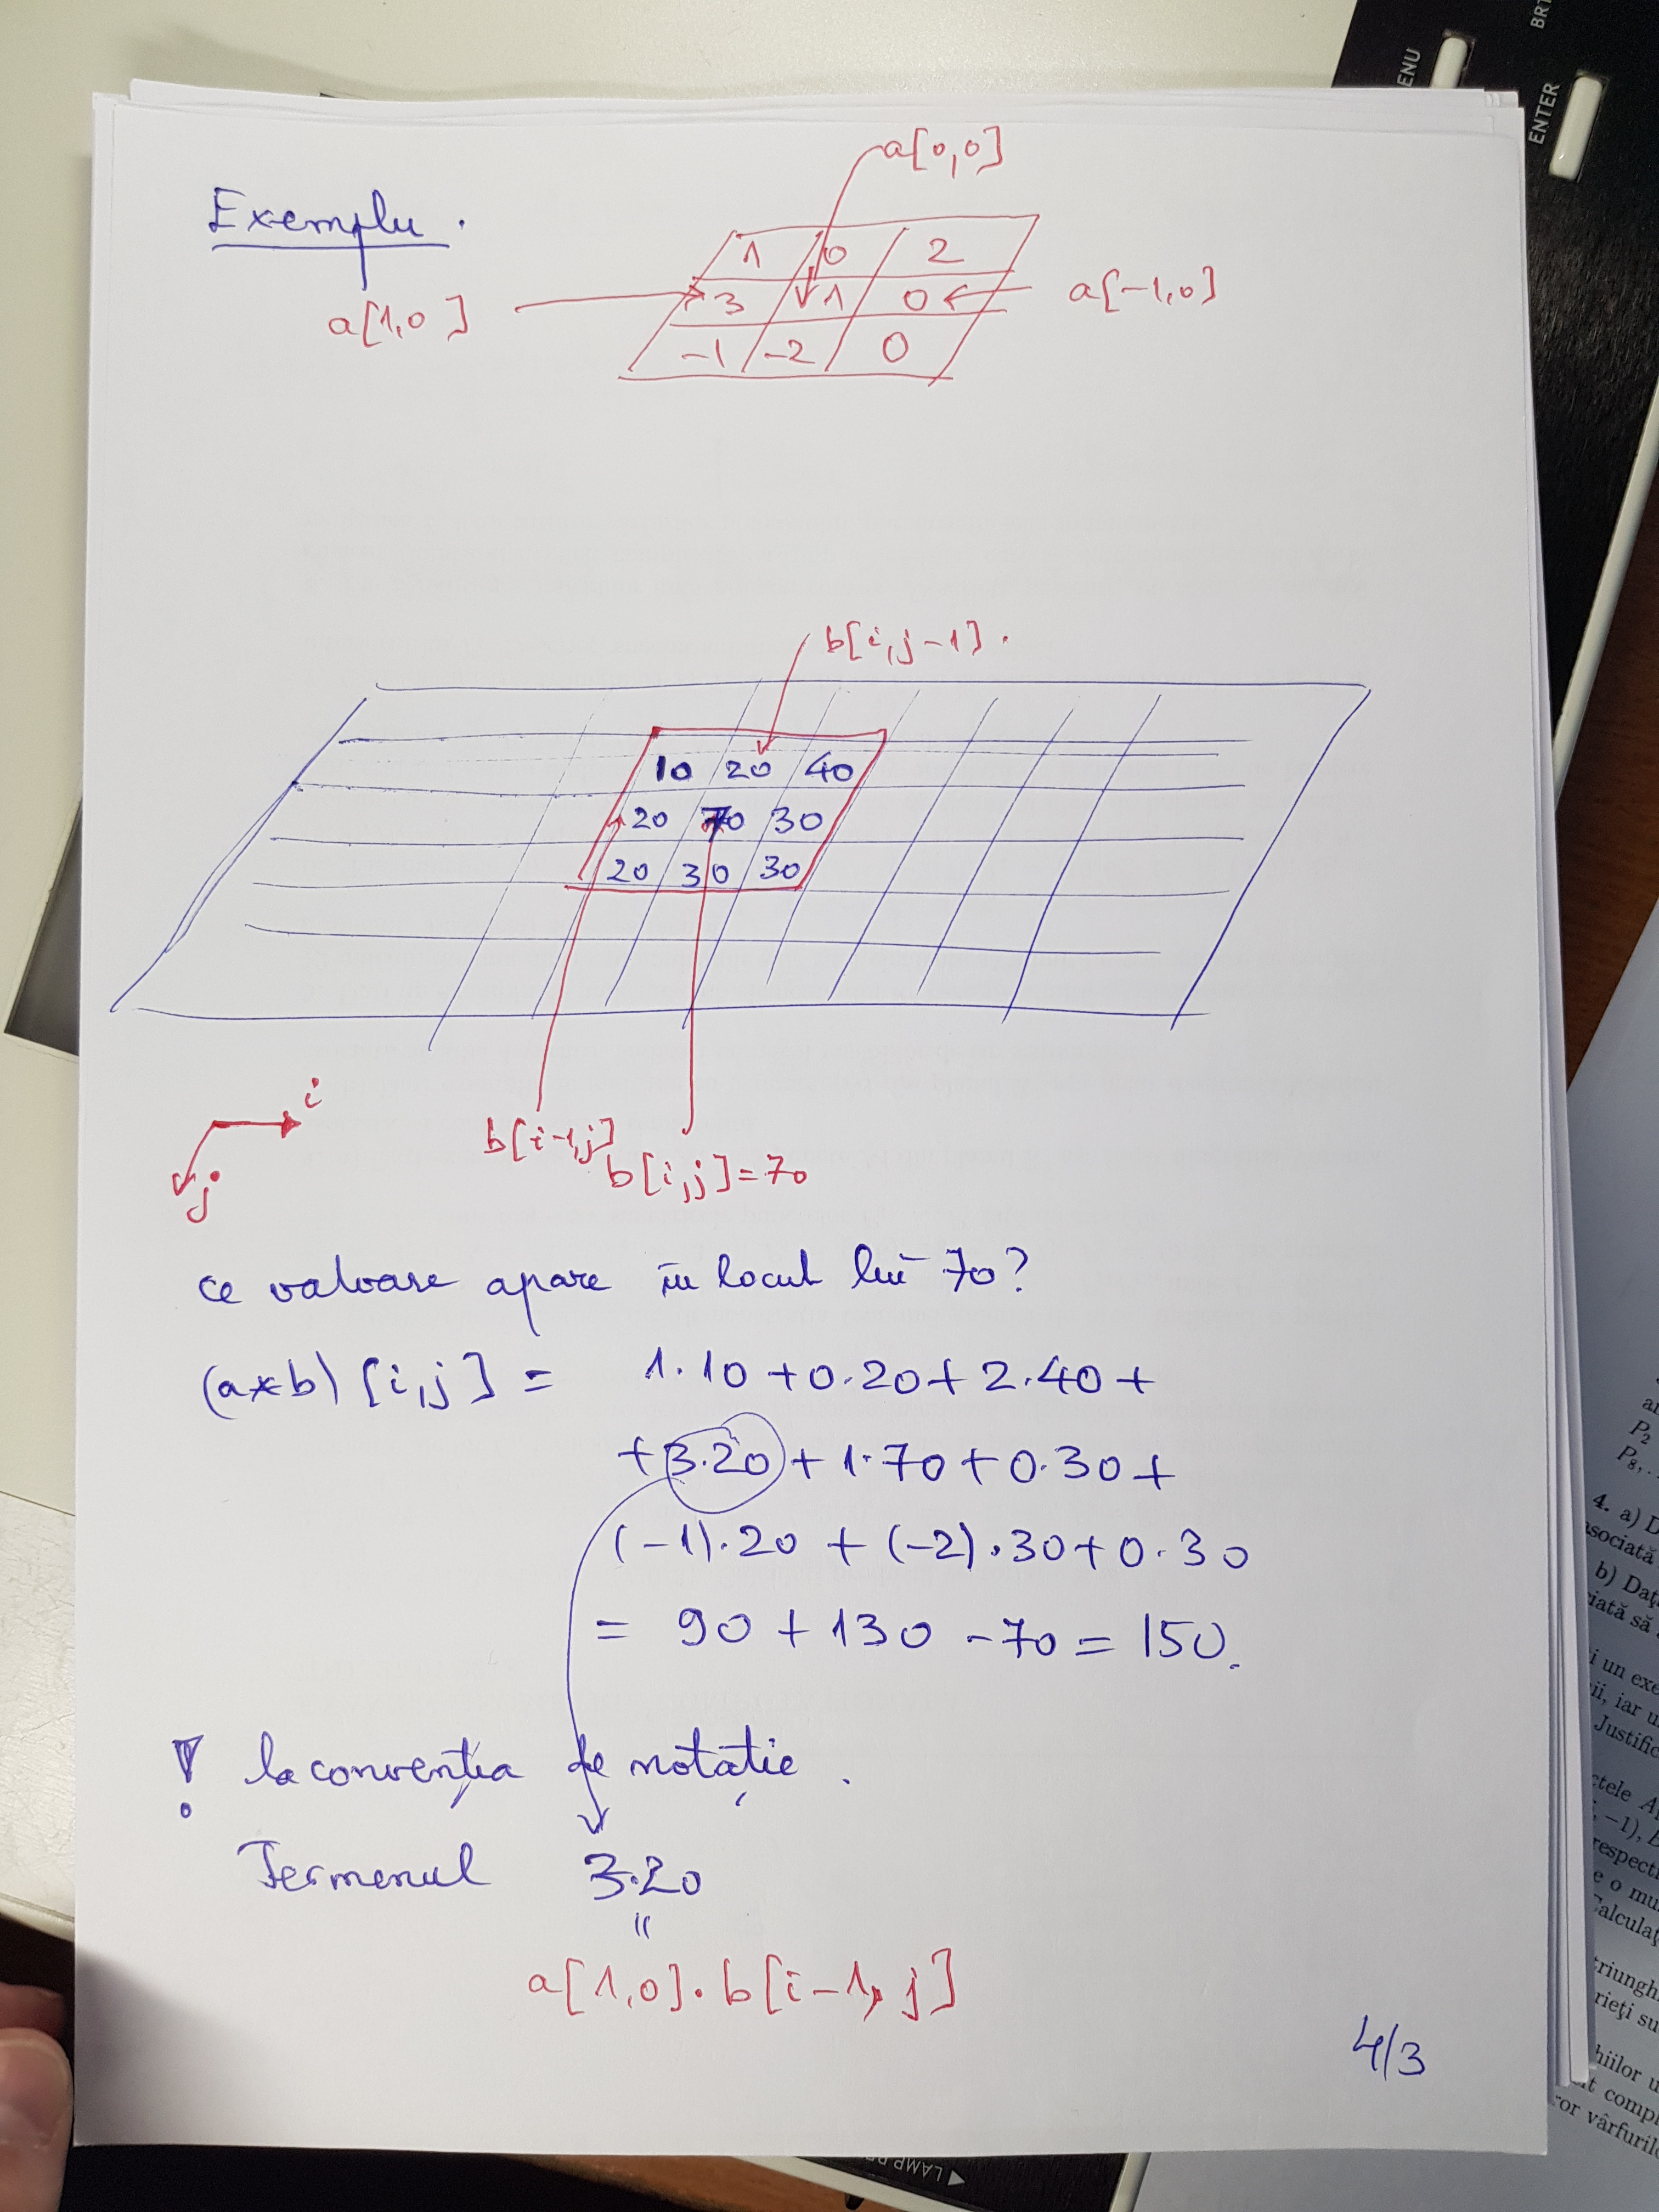 ENU
BRT
ENTER
Exemplu.
a[0,0]
1 0 2
a[1,0]
3 1 0
a[-1,0]
-1 -2 0
b[i,j-1].
10 20 40
20 70 30
20 30 30
i
j
b[i-1,j]
b[i,j]=70
ce valoare apare în locul lui 70?
(a*b)[i,j] = 1·10+0·20+2·40+
+3·20+1·70+0·30+
(-1)·20+(-2)·30+0·30
= 90+130-70=150.
! la convenția de notație.
Termenul 3·20
"
a[1,0]·b[i-1,j]
4/3
P2
P8,.
4. a) D
sociată
b) Daț
iată să
i un exe
ii, iar u
Justific
ctele A
-1), B
respecti
e o mu
Calculaț
triungh
rieți su
hiilor u
t compl
or vârfuril
LAMP